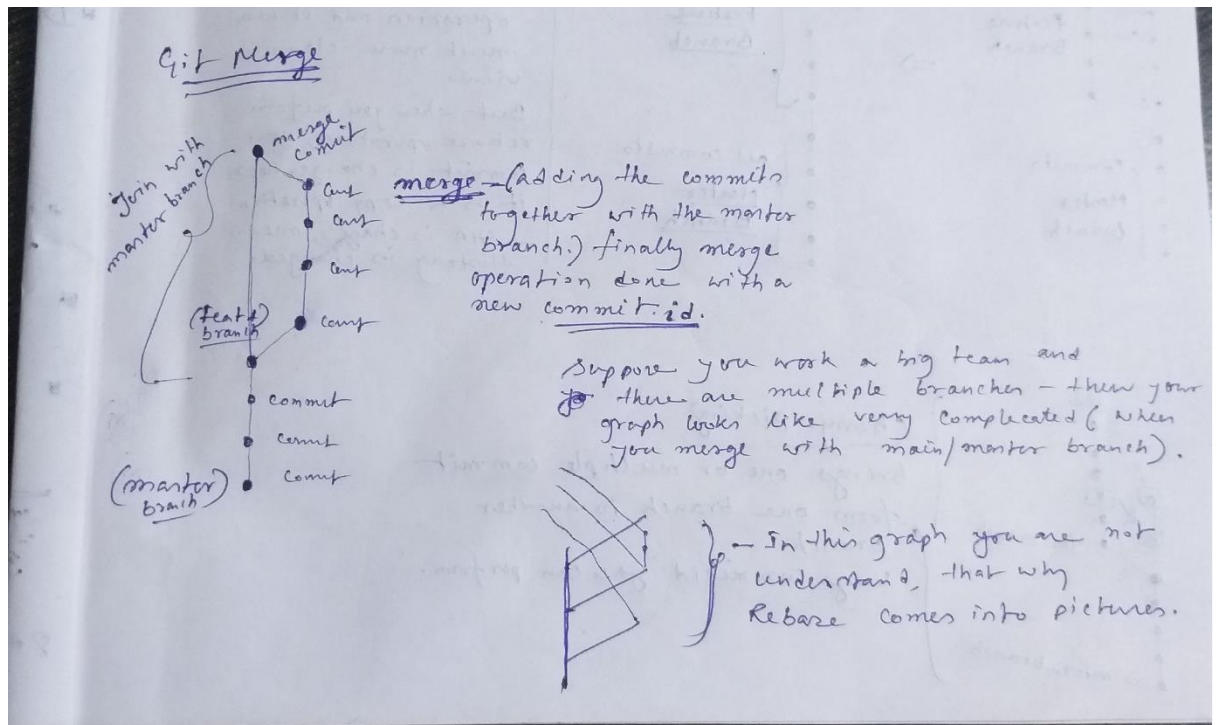 Git Merge
merge
commit
Join with
master branch
comt
comt
comt
comt
(feat 1
branch)
commit
commit
commit
(master)
branch
merge - (adding the commits
together with the master
branch.) finally merge
operation done with a
new commit.id.
Suppose you work a big team and
there are multiple branches - then your
graph looks like verry complecated (when
you merge with main/master branch).
- In this graph you are not
understand, that why
Rebase comes into pictures.